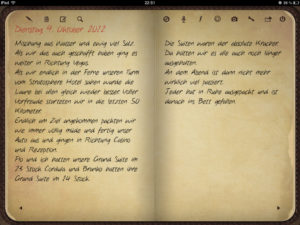 iPod
22:51
Dienstag 4. Oktober 2022
Mischung aus Wasser und ewig viel Salz.
Als wir das auch geschafft haben ging es
weiter in Richtung Vegas.
Als wir endlich in der Ferne unseren Turm
vom Stratosphere Hotel sahen wurde die
Laune bei den gleich wieder besser. Voller
Vorfreude starteten wir in die letzten 50
Kilometer.
Endlich am Ziel angekommen packten wir
wie immer völlig müde und fertig unser
Auto aus und gingen in Richtung Casino
und Rezeption.
Flo und ich hatten unsere Grand Suite im
23 Stock Cordula und Branko hatten ihre
Grand Suite im 24 Stock.
Die Suiten waren der absolute Kracher.
Da hatten wir es alle auch noch länger
ausgehalten.
An dem Abend ist dann nicht mehr
wirklich viel passiert.
Jeder hat in Ruhe ausgepackt und ist
danach ins Bett gefallen.